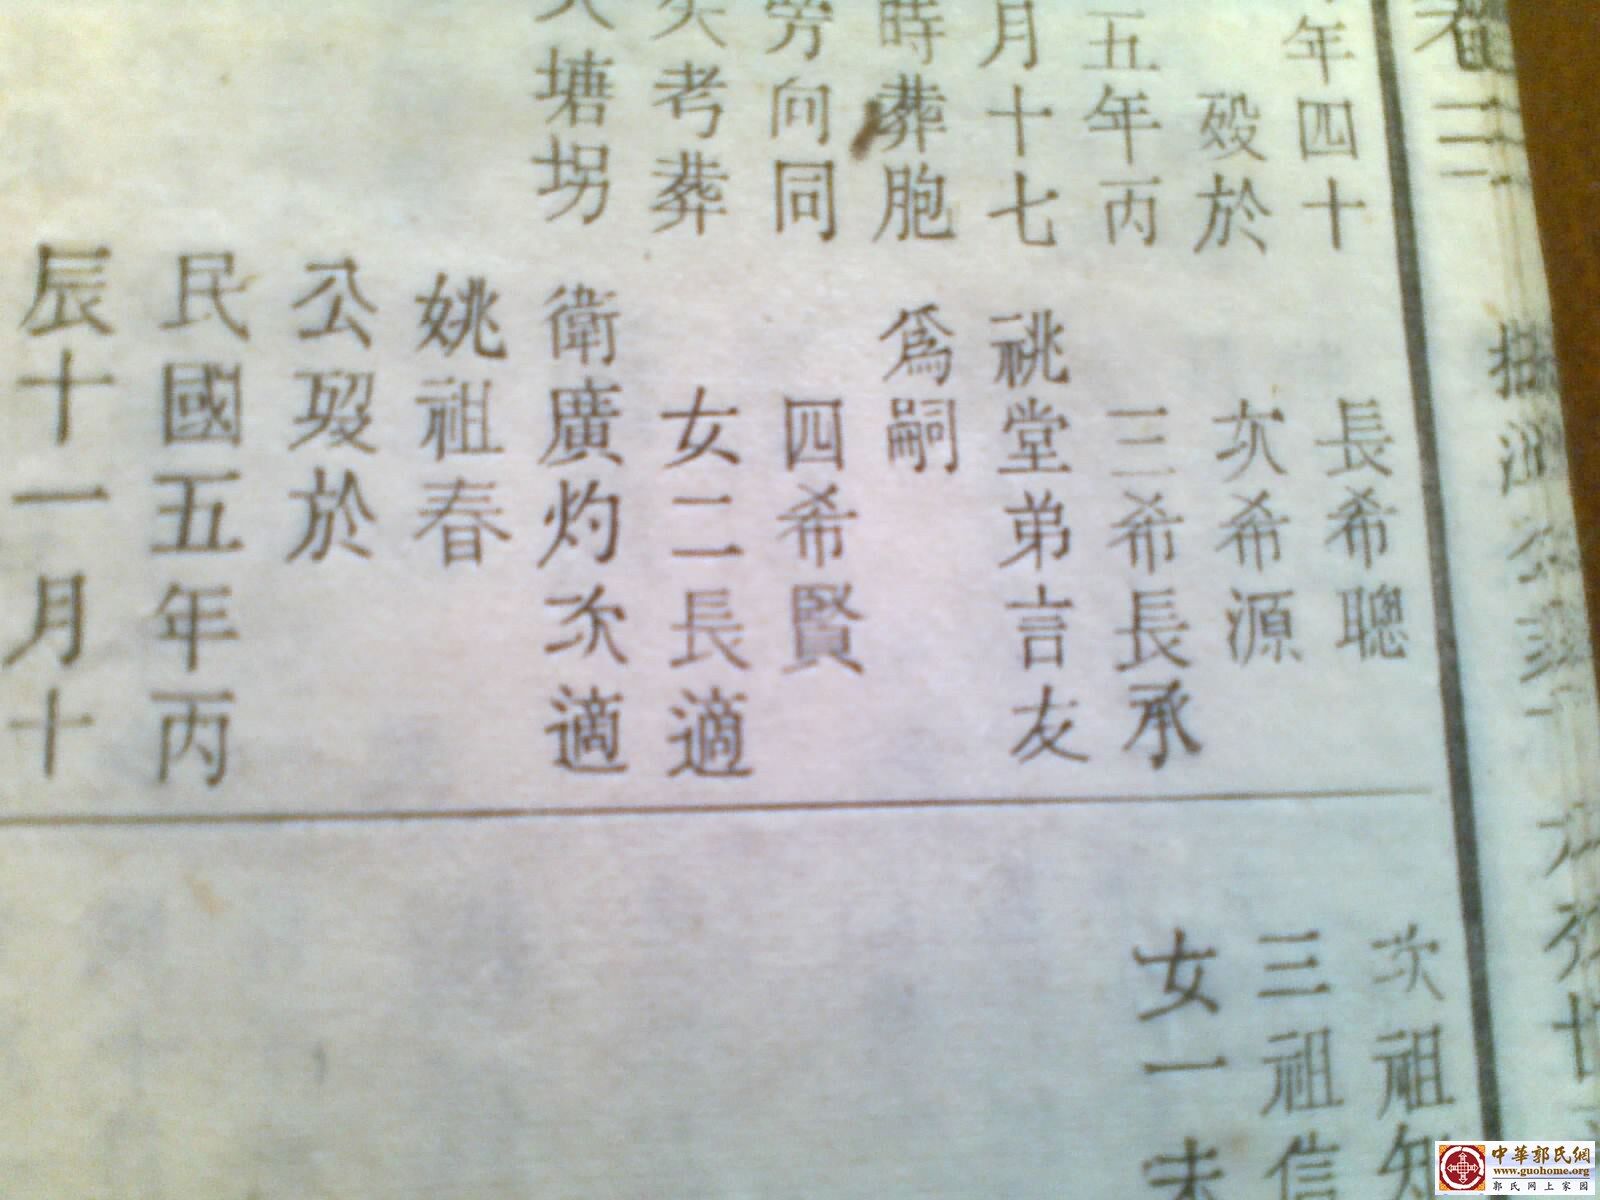 卷二
年四十
歿於
五年丙
月十七
時葬胞
旁向同
考葬
塘坳
長希聰
次希源
三希長承
祧堂弟言友
爲嗣
四希賢
女二長適
衛廣灼次適
姚祖春
公歿於
民國五年丙
辰十一月十
次祖知
三祖信
女一未
中華郭氏網
www.guohome.org
郭氏网上家园